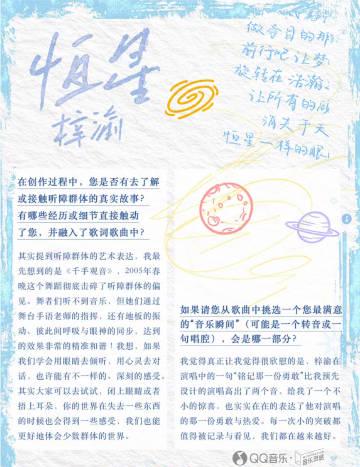 恒星
梓渝
做夺目的那
前行吧 让梦
旋转在浩瀚
让所有的
消失于天
恒星一样的眼
在创作过程中，您是否有去了解
或接触听障群体的真实故事？
有哪些经历或细节直接触动
了您，并融入了歌词歌曲中？
其实提到听障群体的艺术表达，我最
先想到的是《千手观音》，2005年春
晚这个舞蹈彻底击碎了听障群体的偏
见。舞者们听不到音乐，但她们通过
舞台手语老师的指挥，还有地板的振
动、彼此间呼吸与眼神的同步，达到
的效果非常的精准和谐！我想，如果
我们学会用眼睛去倾听，用心灵去对
话，也许能有不一样的、深刻的感受。
其实大家可以去试试，闭上眼睛或者
捂上耳朵，你的世界在失去一些东西
的时候也会得到一些感受，我们也能
更好地体会少数群体的世界。
如果请您从歌曲中挑选一个您最满意
的“音乐瞬间”（可能是一个转音或一
句唱腔），会是哪一部分？
我觉得真正让我觉得很欣慰的是，梓渝在
演唱中的一句“铭记那一份勇敢”比我预先
设计的演唱高出了两个音，给我了一个不
小的惊喜，也实实在在的表达了他对演唱
的那一份勇敢与热爱。每一次小的突破都
值得被记录与看见，我们都在越来越好。
QQ音乐